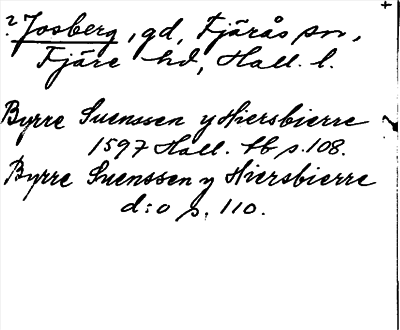 ? Josberg, gd, Fjärås sn,
Fjäre hd, Hall. l.
Byrre Suenssen y Hiersbierre
1597 Hall. tb s. 108.
Byrre Suenssen y Hiersbierre
d:o s. 110.